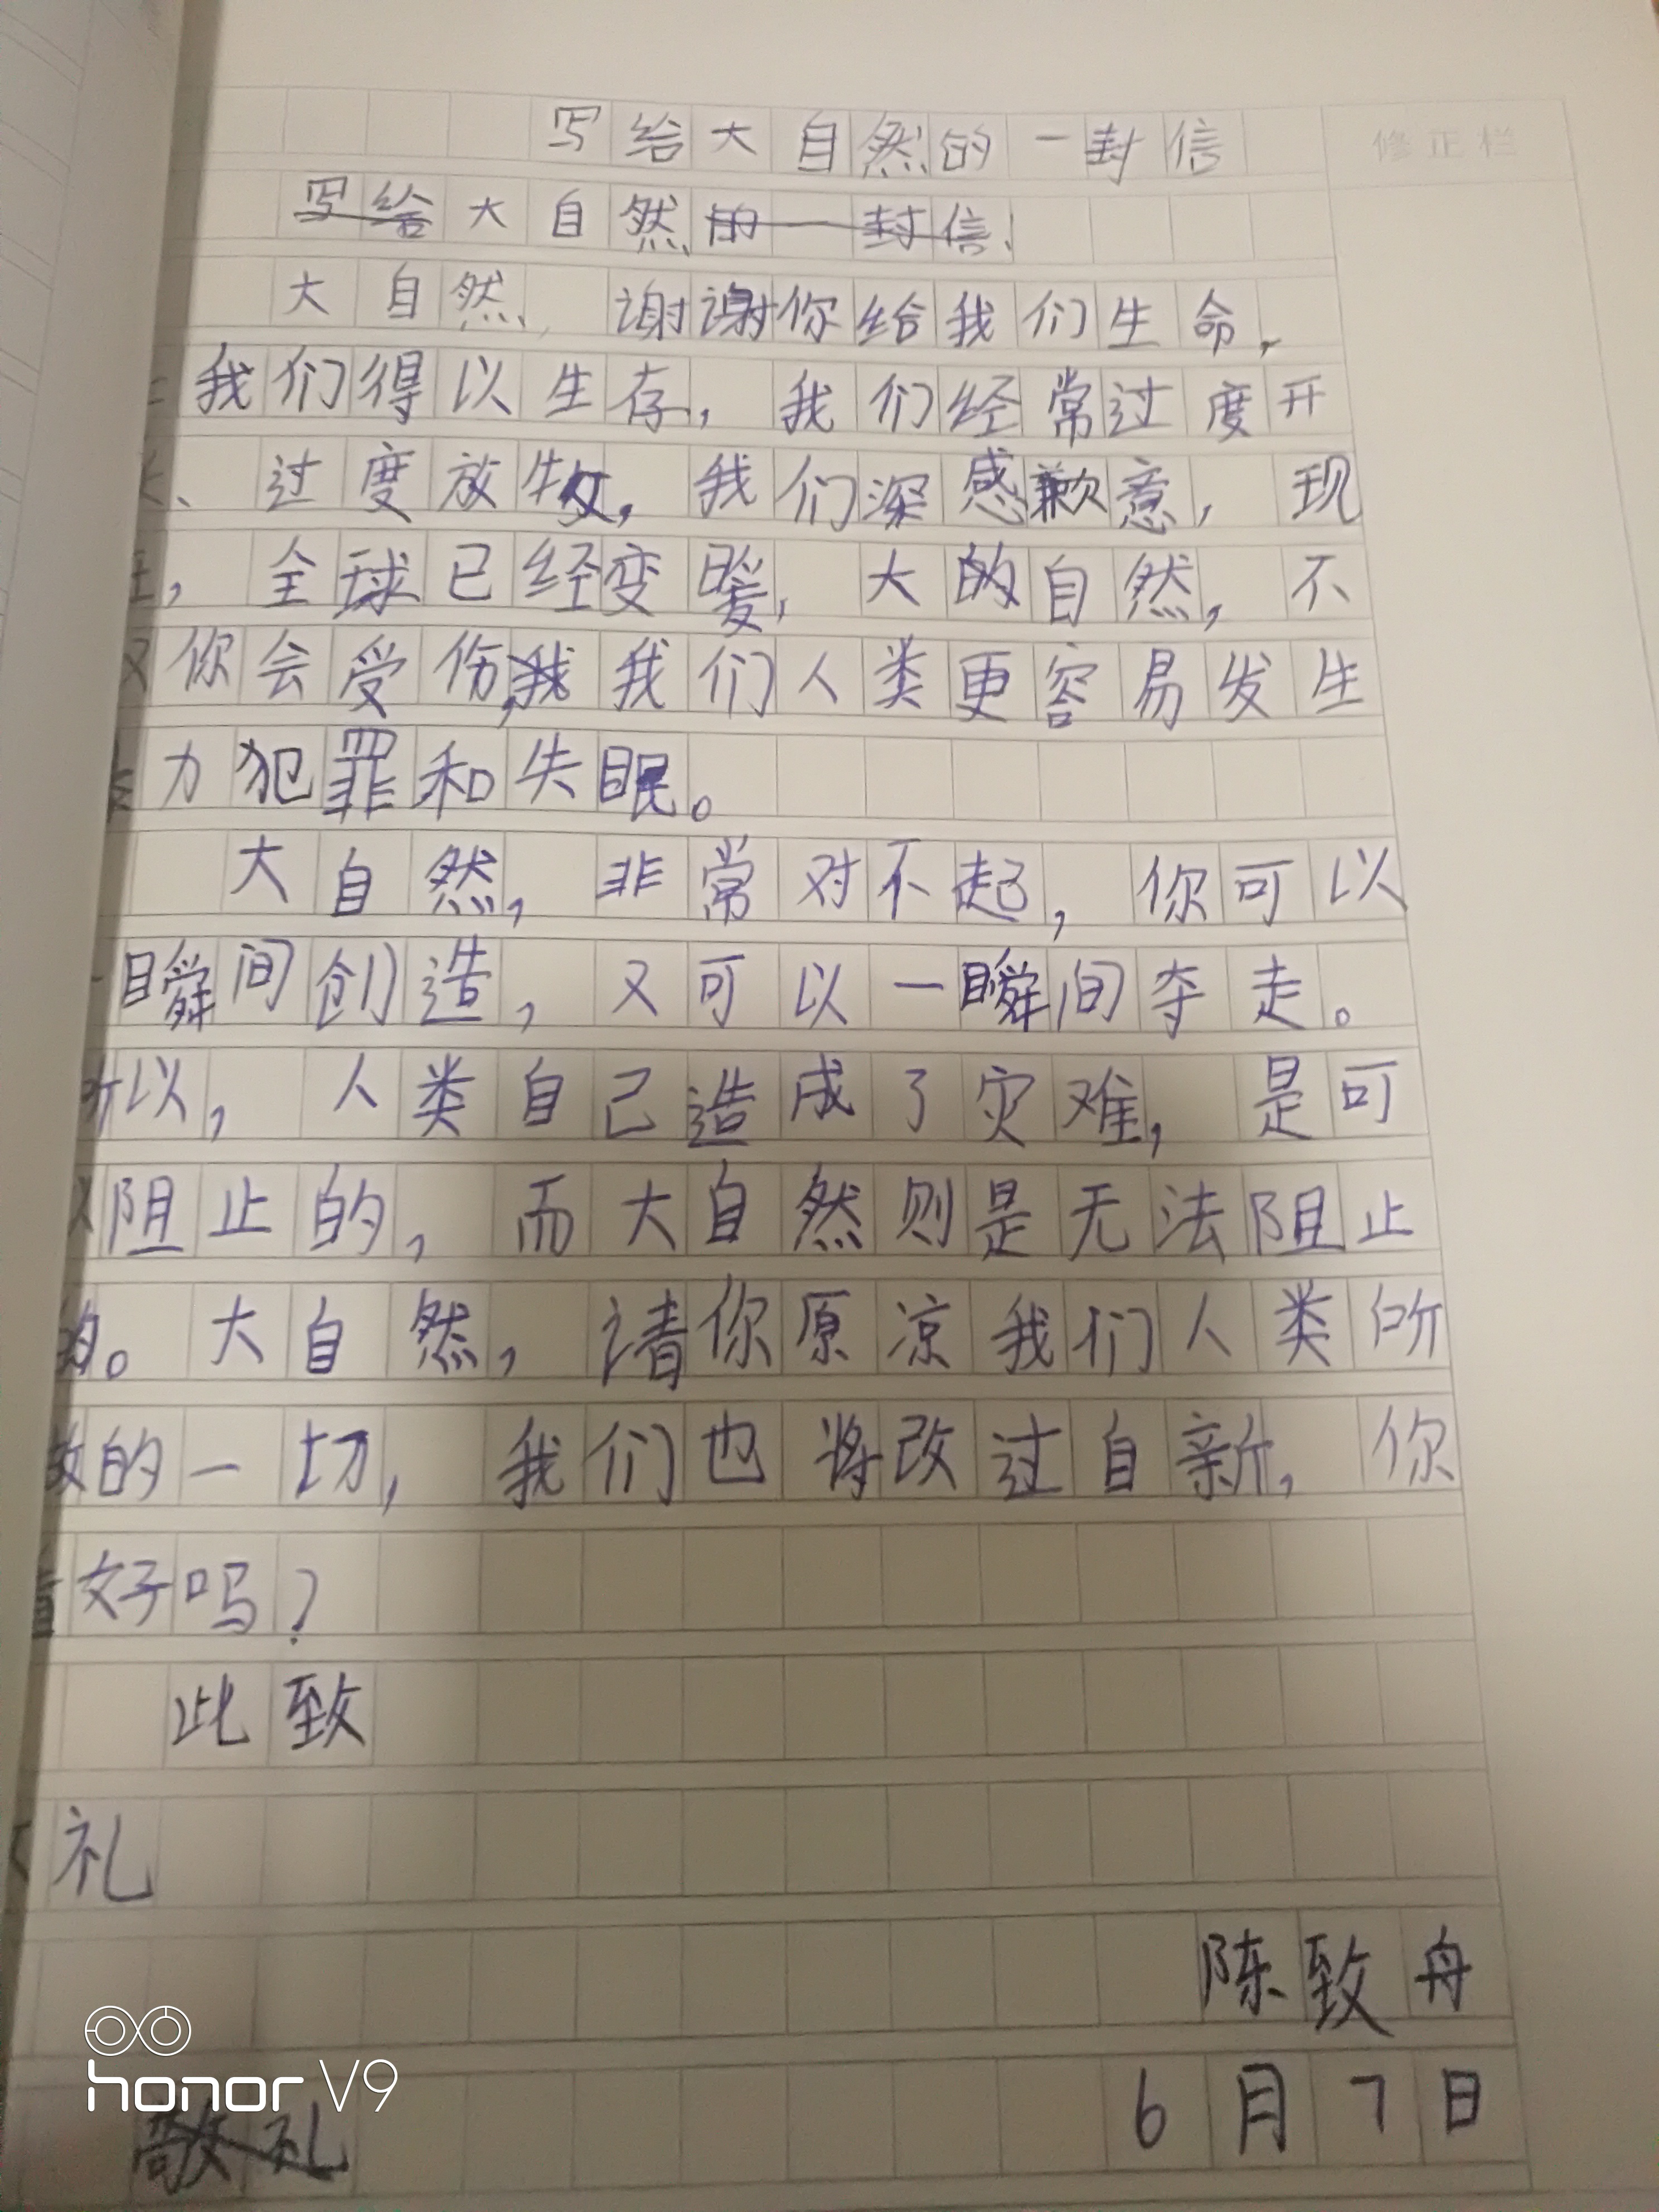 写给大自然的一封信
修正栏
大自然
大自然，谢谢你给我们生命，
我们得以生存，我们经常过度开
、过度放牧，我们深感歉意，现
，全球已经变暖，大的自然，不
你会受伤，我们人类更容易发生
力犯罪和失眠。
大自然，非常对不起，你可以
一瞬间创造，又可以一瞬间夺走。
所以，人类自己造成了灾难，是可
以阻止的，而大自然则是无法阻止
的。大自然，请你原凉我们人类所
做的一切，我们也将改过自新，你
看好吗？
此致
礼
陈致舟
6月7日
honor V9
敬礼